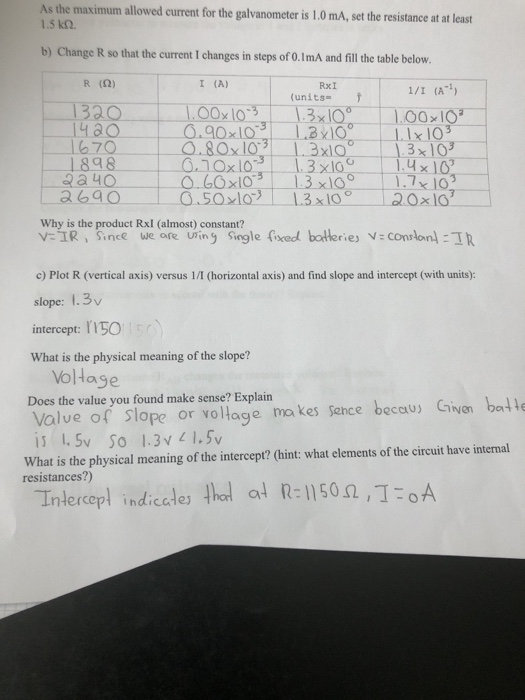 As the maximum allowed current for the galvanometer is 1.0 mA, set the resistance at at least
1.5 kΩ.
b) Change R so that the current I changes in steps of 0.1mA and fill the table below.
R (Ω) I (A) RxI (units= ) 1/I (A⁻¹)
1320 1.00x10⁻³ 1.3x10⁰ 1.00x10³
1420 0.90x10⁻³ 1.3x10⁰ 1.1x10³
1670 0.80x10⁻³ 1.3x10⁰ 1.3x10³
1898 0.70x10⁻³ 1.3x10⁰ 1.4x10³
2240 0.60x10⁻³ 1.3x10⁰ 1.7x10³
2690 0.50x10⁻³ 1.3x10⁰ 2.0x10³
Why is the product RxI (almost) constant?
V=IR, since we are using single fixed batteries V=constant=IR
c) Plot R (vertical axis) versus 1/I (horizontal axis) and find slope and intercept (with units):
slope: 1.3v
intercept: 1150
What is the physical meaning of the slope?
Voltage
Does the value you found make sense? Explain
Value of slope or voltage makes sence becaus Given batte
is 1.5v so 1.3v < 1.5v
What is the physical meaning of the intercept? (hint: what elements of the circuit have internal
resistances?)
Intercept indicates that at R=1150Ω, I=0A